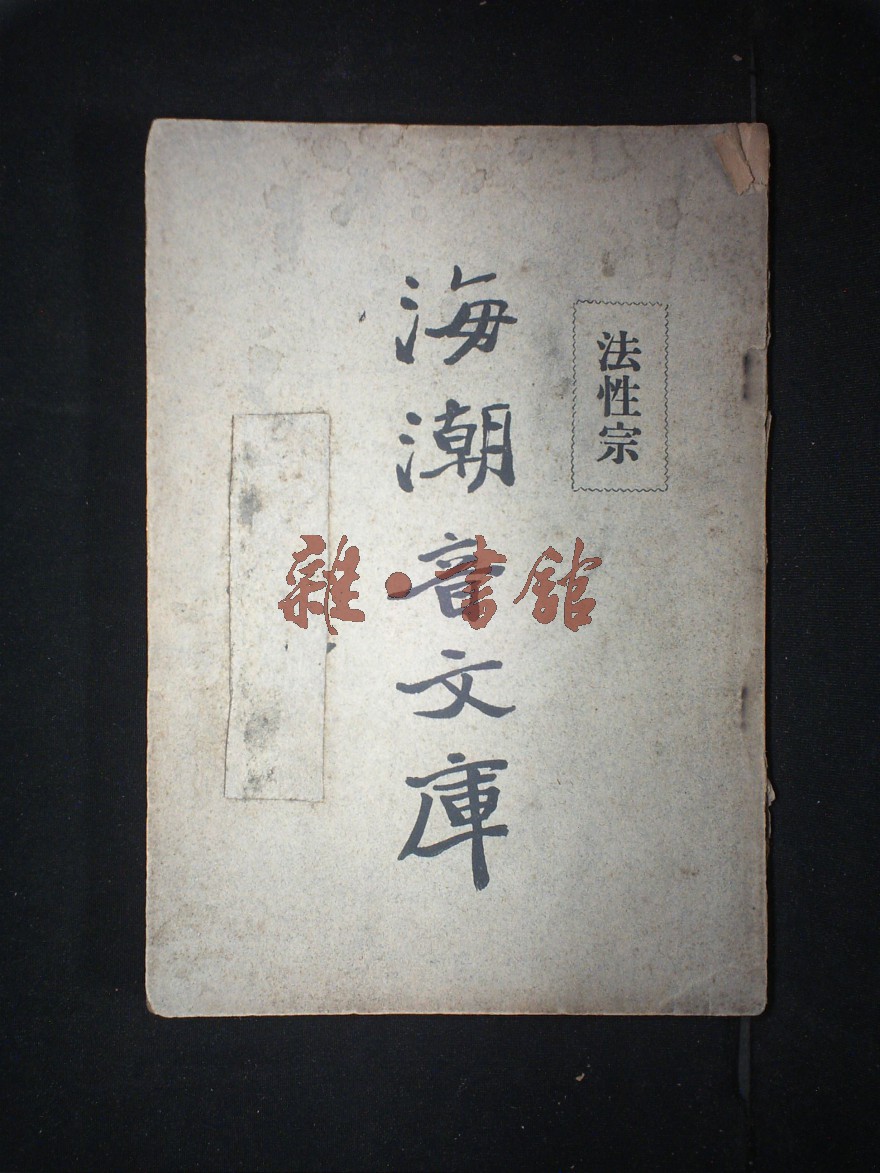 法性宗
海潮音文庫
雜·書館